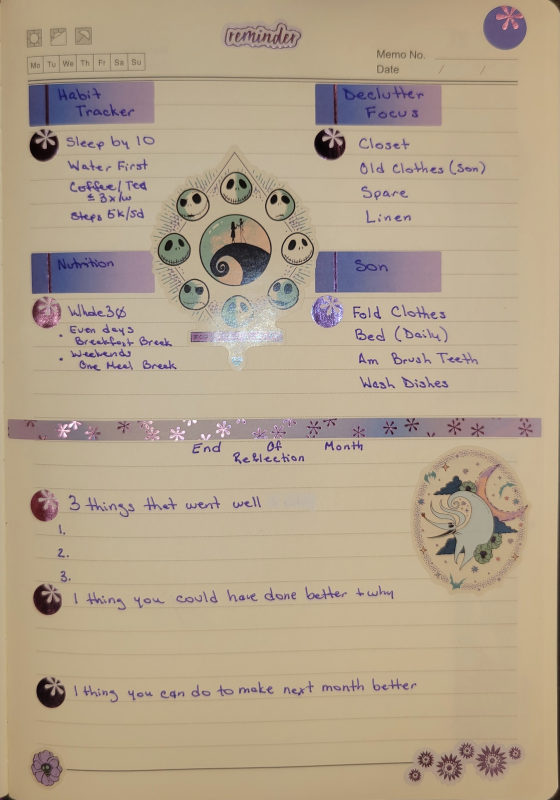 reminder
Memo No.
Mo Tu We Th Fr Sa Su
Date / /
Habit
Tracker
Sleep by 10
Water First
Coffee/Tea
≤ 3x/w
Steps 5k/5d
Declutter
Focus
Closet
Old Clothes (Son)
Spare
Linen
Nutrition
Whole30
• Even days
Breakfast Break
• Weekends
One Meal Break
Son
Fold Clothes
Bed (Daily)
Am Brush Teeth
Wash Dishes
End Of Month
Reflection
3 things that went well
1.
2.
3.
1 thing you could have done better + why
1 thing you can do to make next month better